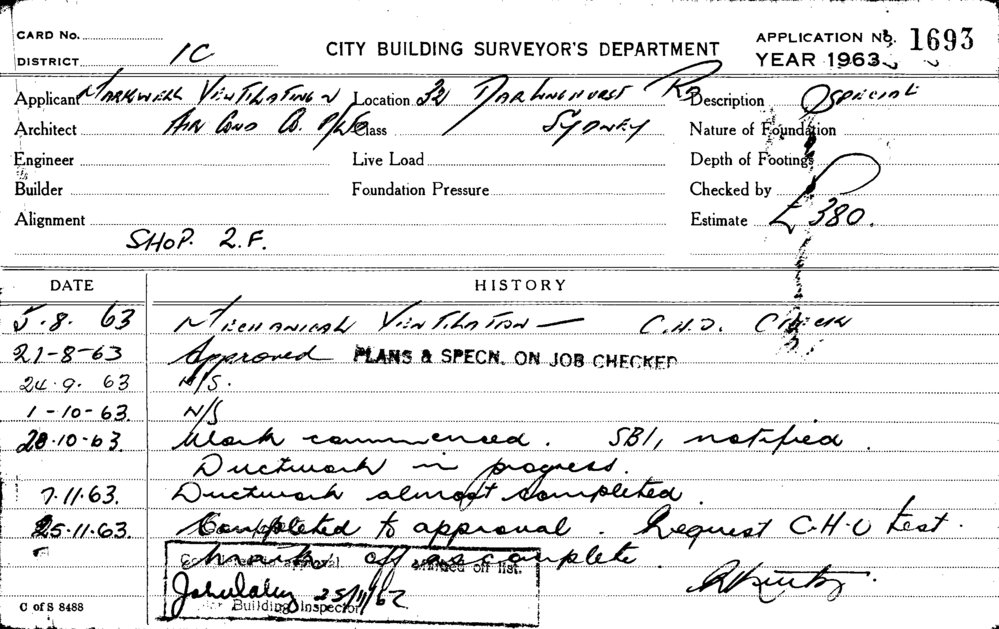 CARD No.
DISTRICT 1C
CITY BUILDING SURVEYOR'S DEPARTMENT
APPLICATION No. 1693
YEAR 1963
Applicant Markwell Ventilating & Location 32 Darlinghurst Rd Description Special
Architect Air Cond Co. P/L Class Sydney Nature of Foundation
Engineer Live Load Depth of Footings
Builder Foundation Pressure Checked by
Alignment Estimate £380.
SHOP. 2.F.
DATE HISTORY
5.8.63 Mechanical Ventilation — C.H.O. Check
21-8-63 Approved PLANS & SPECN. ON JOB CHECKED
24.9.63 N/S.
1-10-63. N/S
28.10.63. Work commenced. SBI, notified.
Ductwork in progress.
7.11.63. Ductwork almost completed.
25.11.63. Completed to approval. Request C.H.O test.
mark off as complete.
approval marked off list.
25/11/62
Building Inspector
C of S 8488